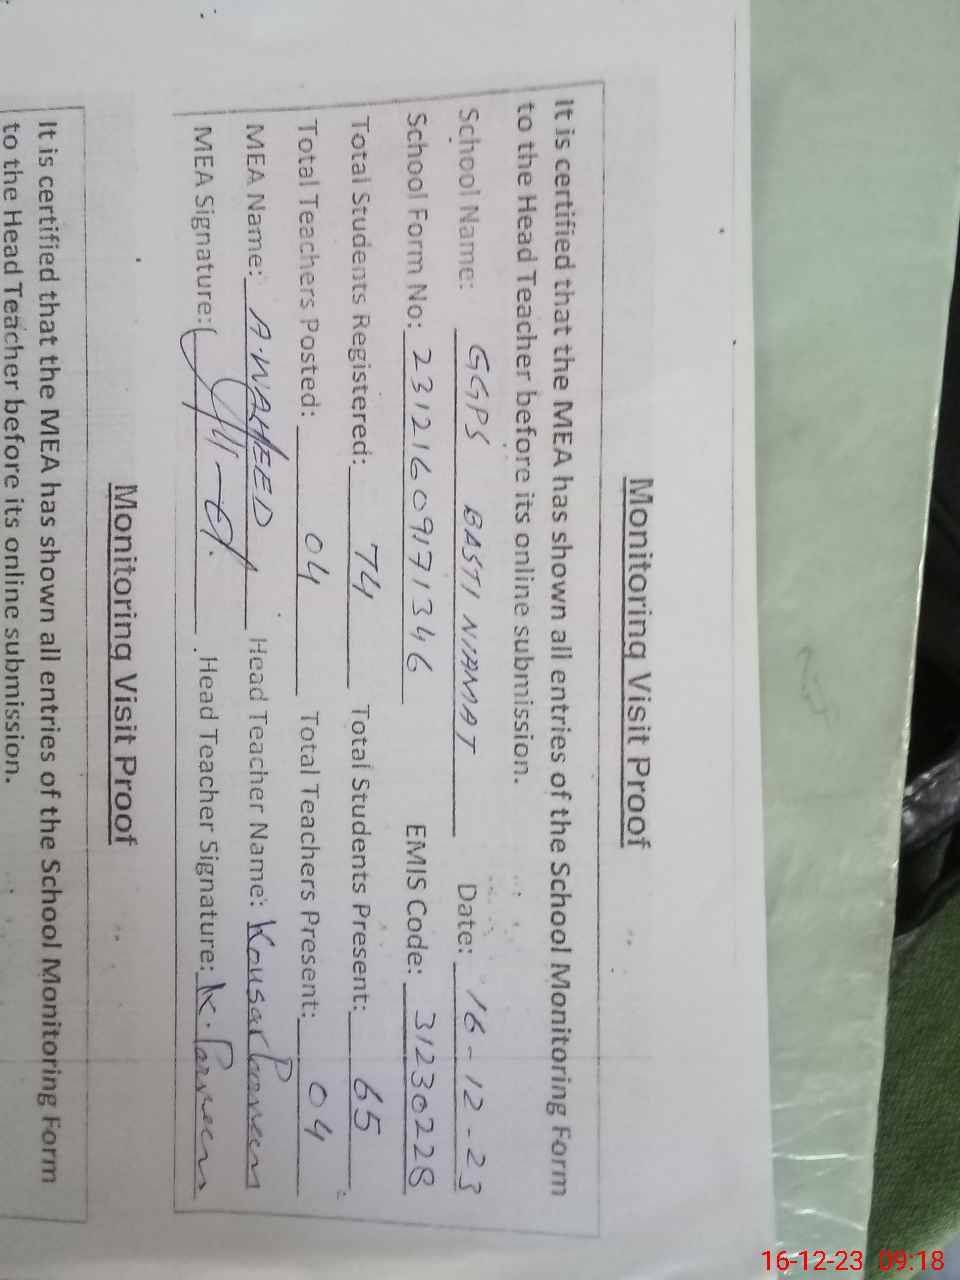 Monitoring Visit Proof
It is certified that the MEA has shown all entries of the School Monitoring Form
to the Head Teacher before its online submission.
School Name: GGPS BASTI NIAMAT Date: 16-12-23
School Form No: 23121609171346 EMIS Code: 31230228
Total Students Registered: 74 Total Students Present: 65
Total Teachers Posted: 04 Total Teachers Present: 04
MEA Name: A.WAHEED Head Teacher Name: Kousar Parveen
MEA Signature: Head Teacher Signature: K. Parveen
Monitoring Visit Proof
It is certified that the MEA has shown all entries of the School Monitoring Form
to the Head Teacher before its online submission.
16-12-23 09:18